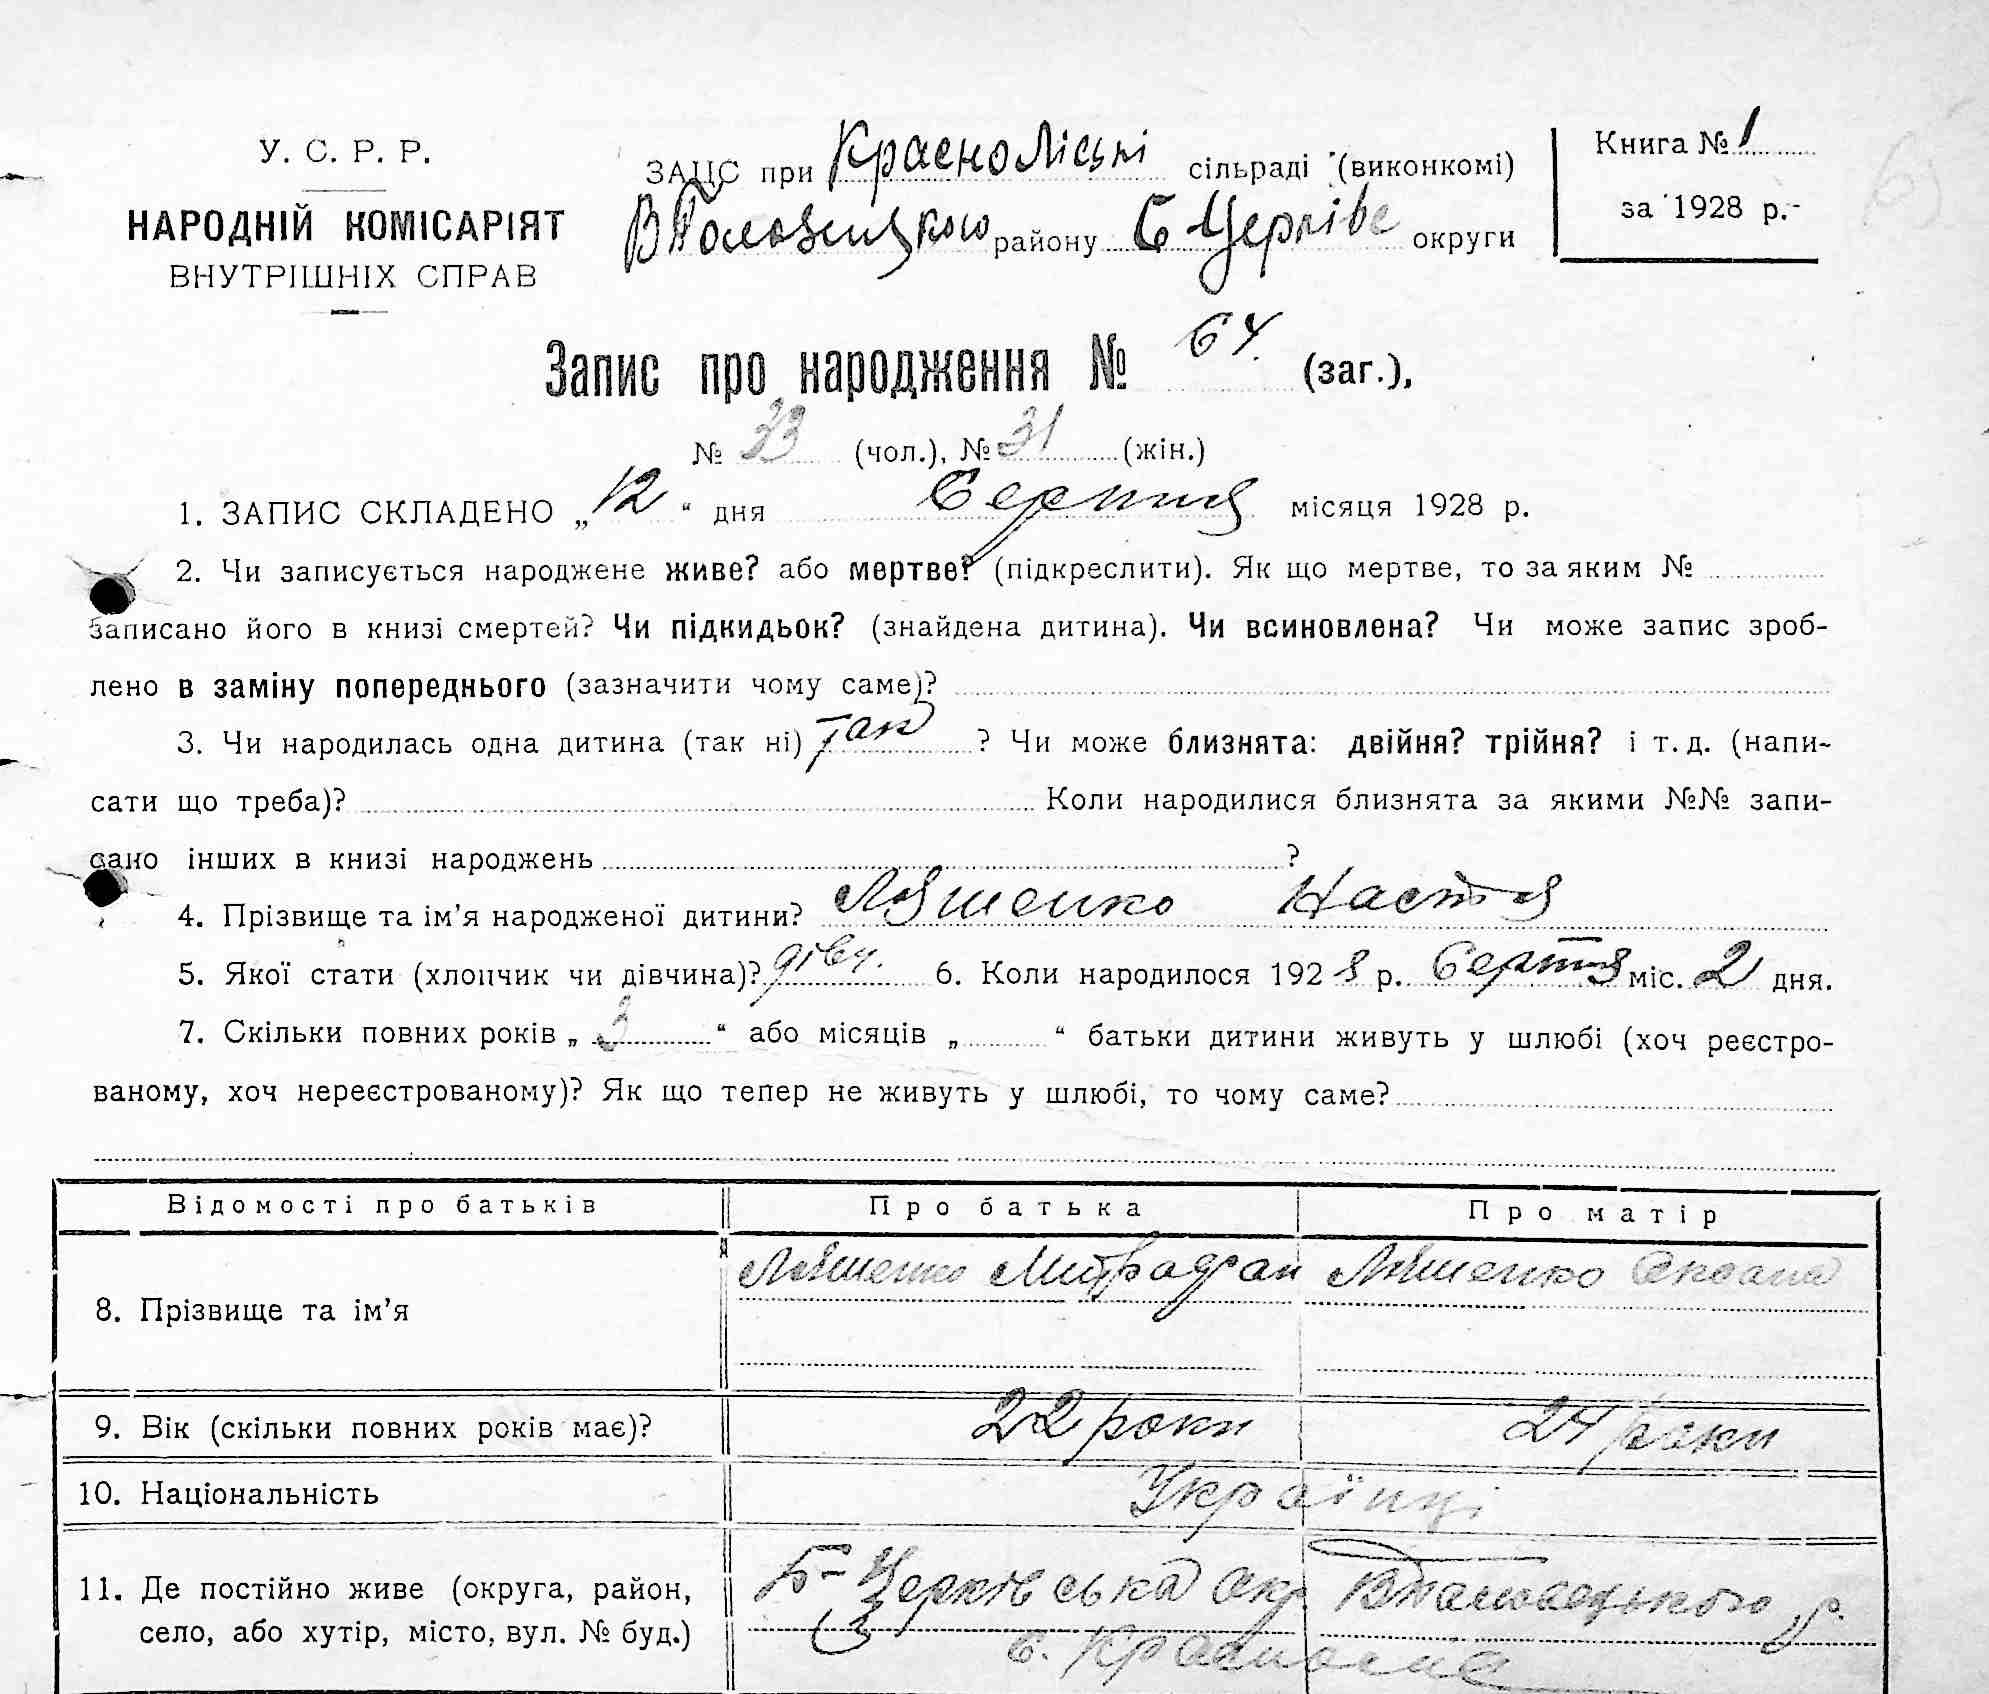 У. С. Р. Р.
НАРОДНІЙ КОМІСАРІЯТ
ВНУТРІШНІХ СПРАВ
ЗАЦС при Краснолісці сільраді (виконкомі)
району Б Церківс округи
Книга № 1
за 1928 р.
Запис про народження № 64 (заг.),
№ 33 (чол.), № 31 (жін.)
1. ЗАПИС СКЛАДЕНО „12“ дня Серпня місяця 1928 р.
2. Чи записується народжене живе? або мертве? (підкреслити). Як що мертве, то за яким №
записано його в книзі смертей? Чи підкидьок? (знайдена дитина). Чи всиновлена? Чи може запис зроб-
лено в заміну попереднього (зазначити чому саме)?
3. Чи народилась одна дитина (так ні) так ? Чи може близнята: двійня? трійня? і т. д. (напи-
сати що треба)? Коли народилися близнята за якими №№ запи-
сано інших в книзі народжень ?
4. Прізвище та ім’я народженої дитини? Ляшенко Настя
5. Якої стати (хлопчик чи дівчина)? дівч. 6. Коли народилося 1928 р. Серпня міс. 2 дня.
7. Скільки повних років „3“ або місяців „ “ батьки дитини живуть у шлюбі (хоч реєстро-
ваному, хоч нереєстрованому)? Як що тепер не живуть у шлюбі, то чому саме?
Відомості про батьків Про батька Про матір
8. Прізвище та ім’я Ляшенко Митрофан Ляшенко Оксана
9. Вік (скільки повних років має)? 22 роки 24 роки
10. Національність Українці
11. Де постійно живе (округа, район, Б-Церківська окр р.
село, або хутір, місто, вул. № буд.) с. Красноліс